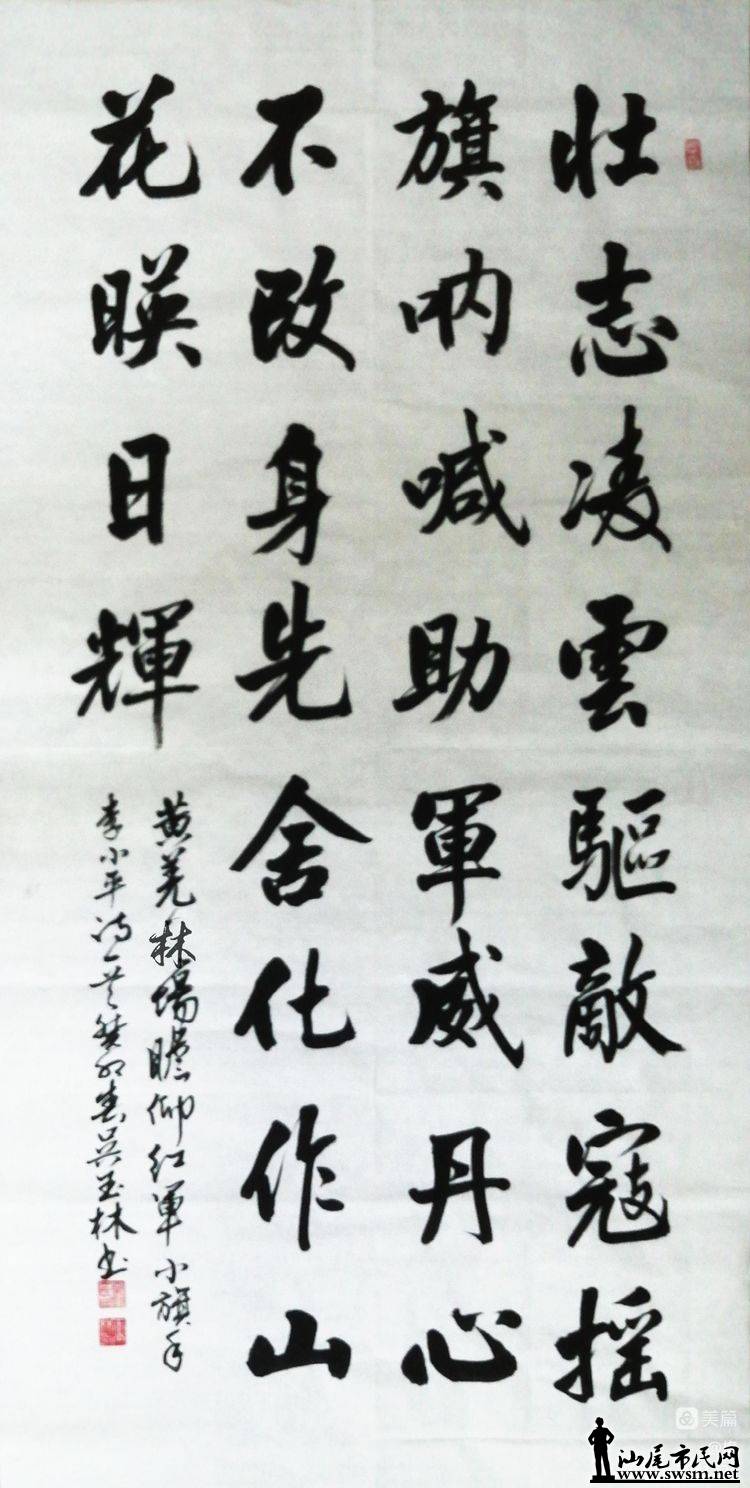 壮志凌雲驅敵寇摇
旗呐喊助軍威丹心
不改身先舍化作山
花暎日輝
黄羌林場瞻仰红軍小旗手
李小平诗一首癸卯春吴玉林书
美篇
汕尾市民网
www.swsm.net